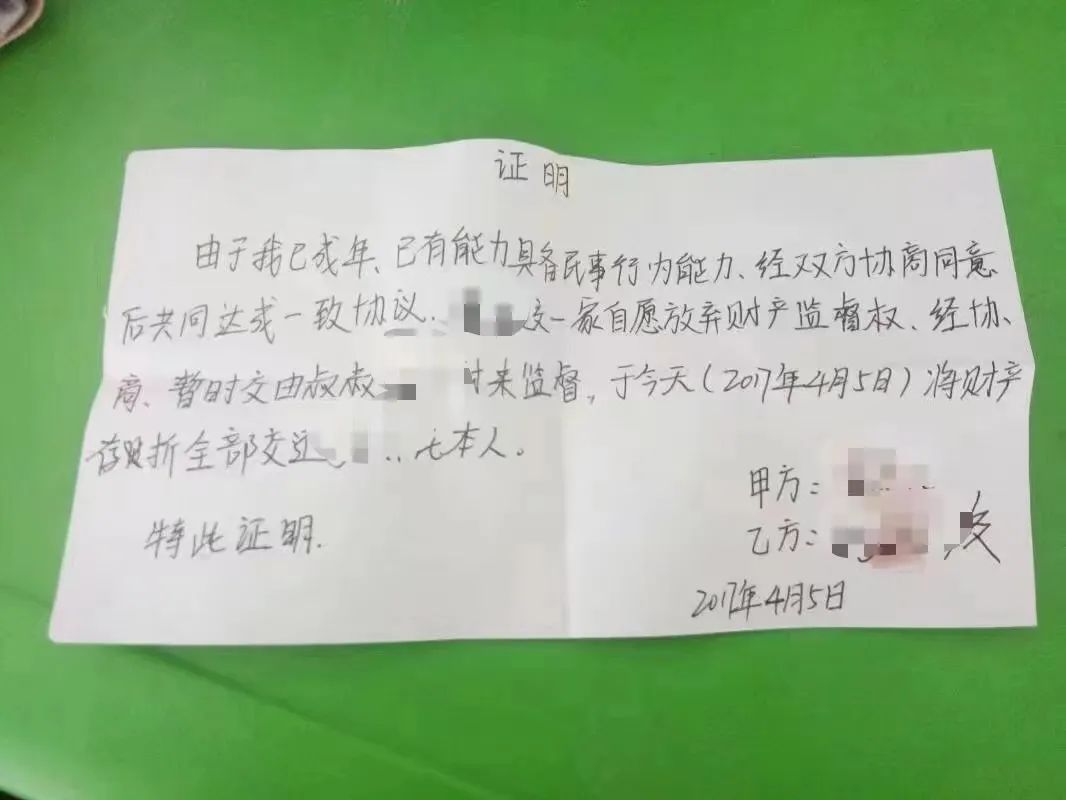 证明
由于我已成年、已有能力具备民事行为能力、经双方协商同意
后共同达成一致协议.一家自愿放弃财产监督权、经协
商、暂时交由叔叔来监督,于今天(2017年4月5日)将财产
存折全部交还本人。
特此证明.
甲方:
乙方:
2017年4月5日